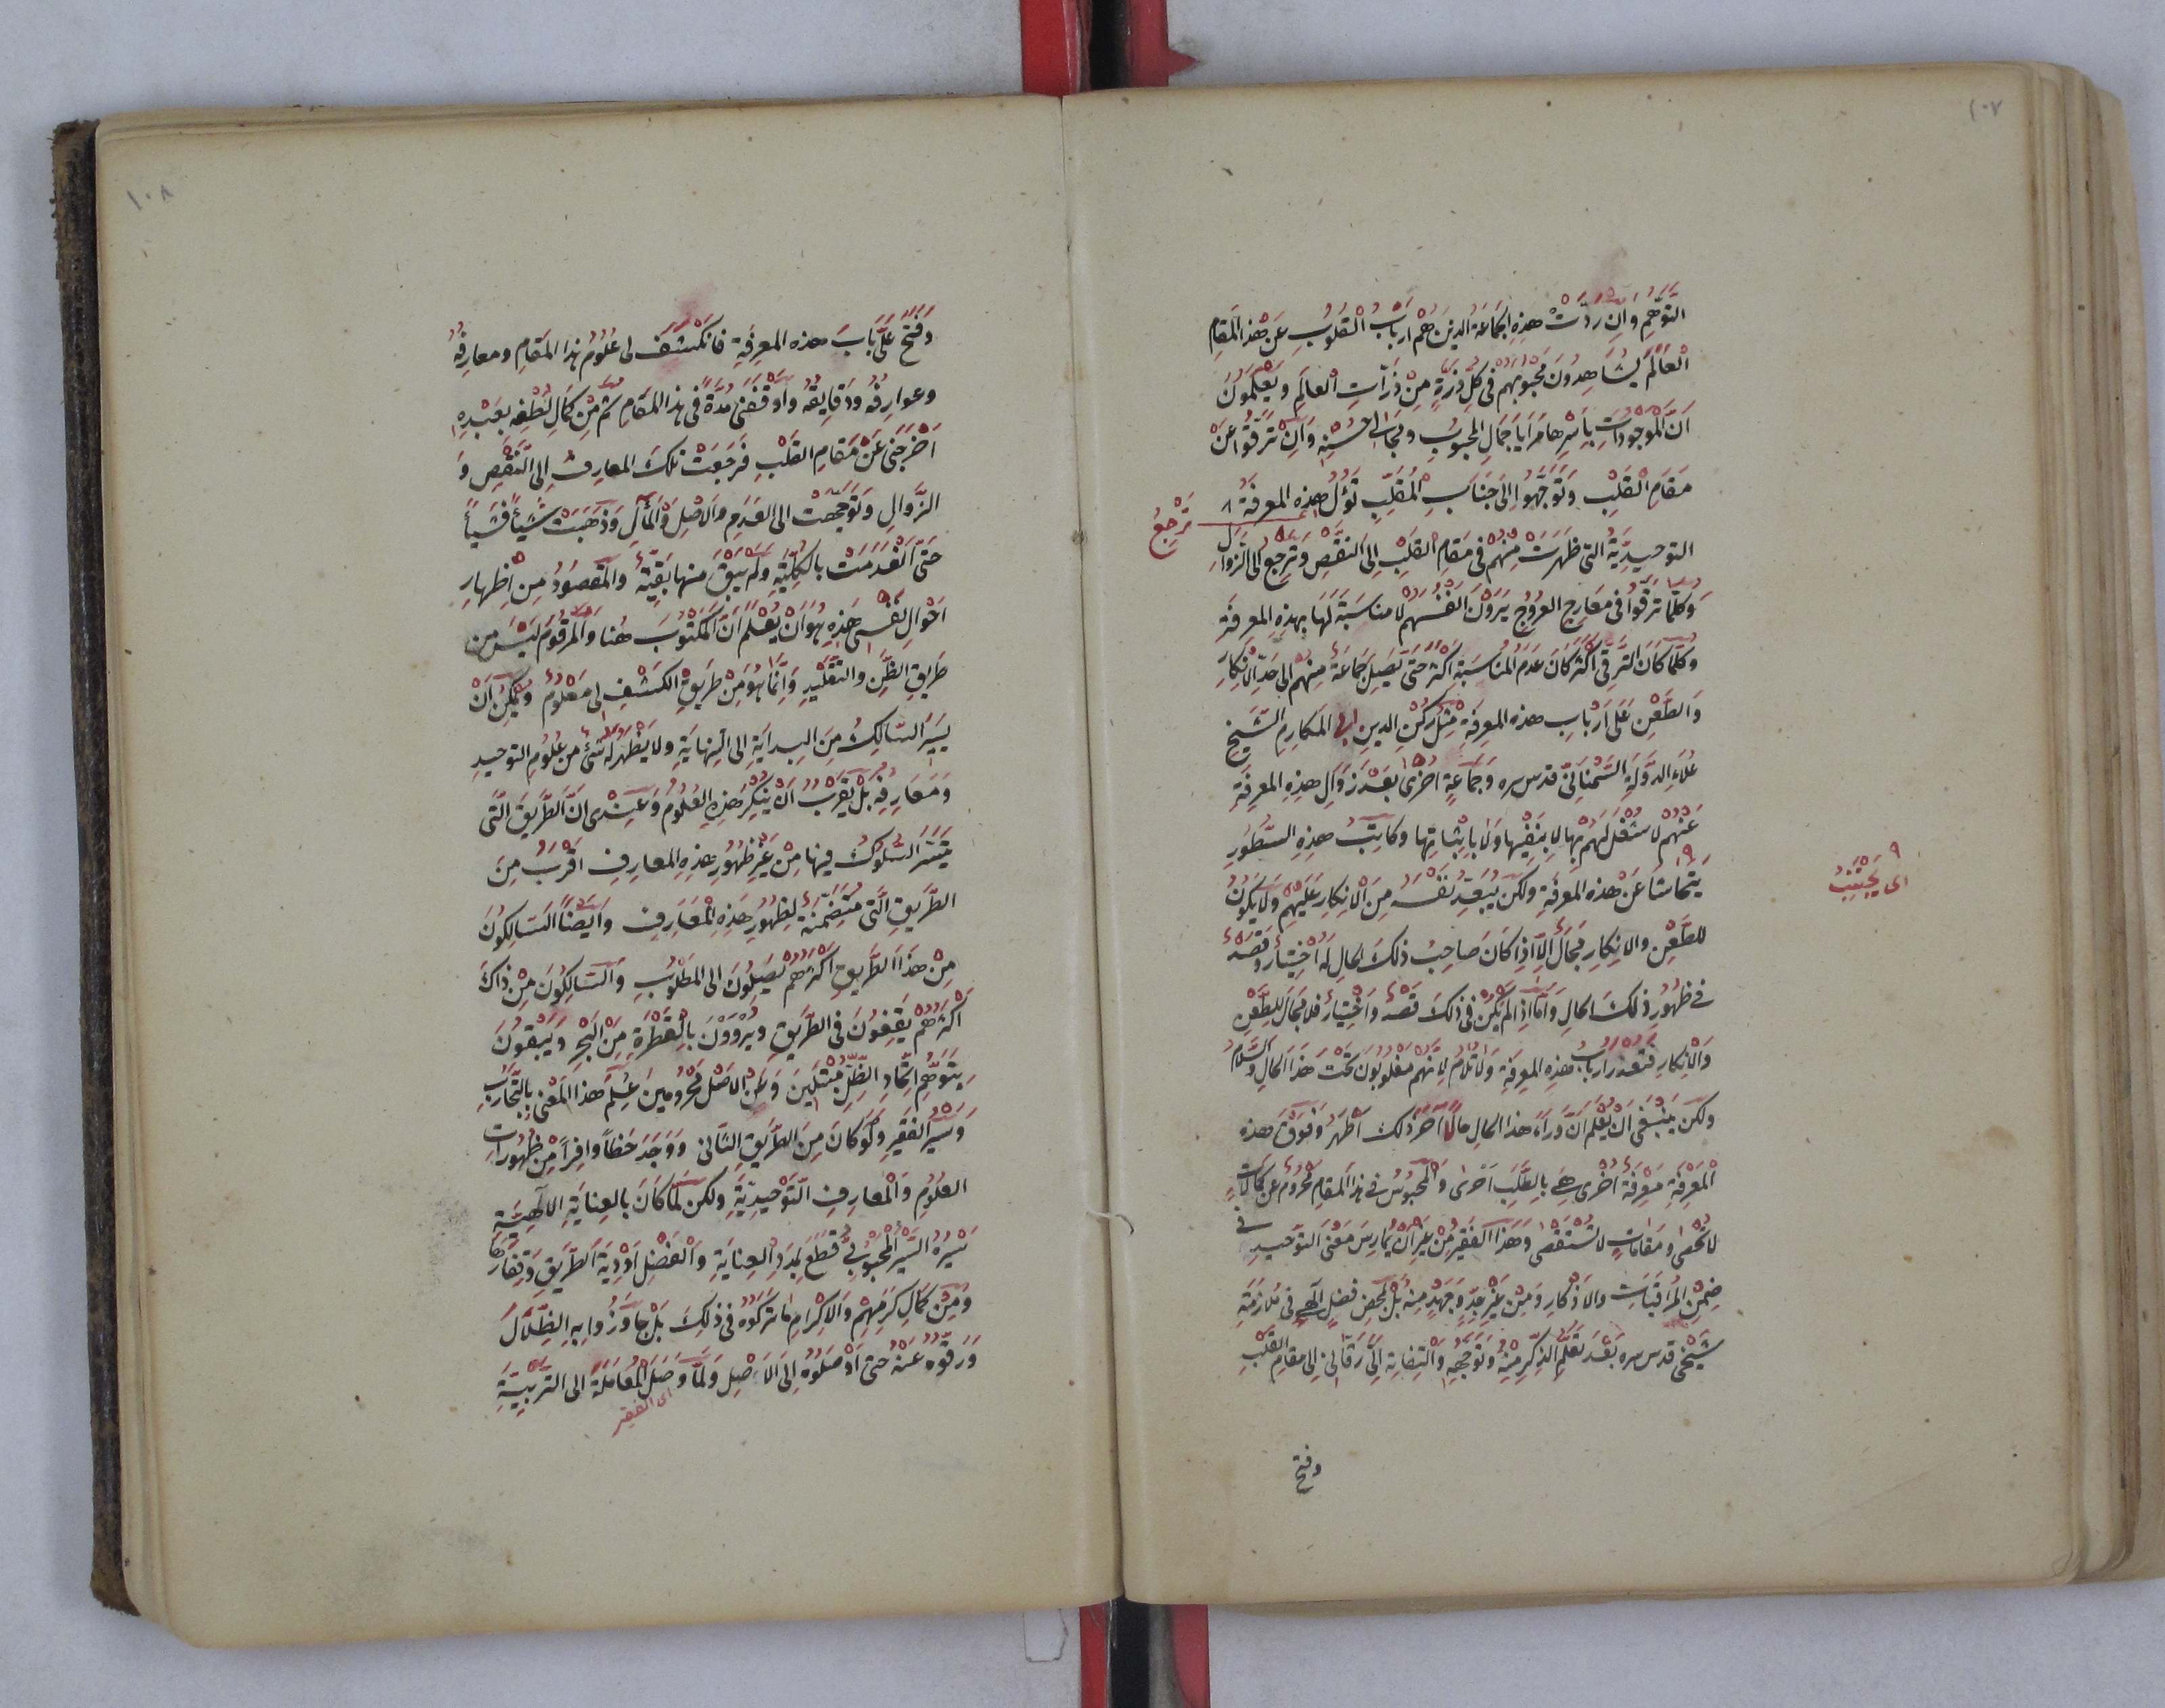 ١٠٧
التوهم وان ردت هذه الجماعة الذين هم ارباب القلوب عن هذا المقام
العالم يشاهدون محبوبهم فى كل ذرة من ذرات العالم ويعلمون
ان الموجودات باسرها مرايا جمال المحبوب ومجالى حسنه وان ترقوا عن
مقام القلب وتوجهوا الى جناب المقلب تؤل هذه المعرفة
ترجع
التوحيدية التى ظهرت منهم فى مقام القلب الى النقص وترجع الى الزوال
وكلما ترقوا فى معارج العروج يرون انفسهم لا مناسبة لها بهذه المعرفة
وكلما كان الترقى اكثر كان عدم المناسبة اكثر حتى يصل جماعة منهم الى حد الانكار
والطعن على ارباب هذه المعرفة مثل ركن الدين ابى المكارم الشيخ
علاء الدولة السمنانى قدس سره وجماعة اخرى بعد زوال هذه المعرفة
عنهم لا شغل لهم بها لا بنفيها ولا باثباتها وكاتب هذه السطور
يتحاشا عن هذه المعرفة ولكن يبعد نفسه من الانكار عليهم ولا يكون
اى يجتنب
للطعن والانكار مجال الا اذا كان صاحب ذلك الحال له اختيار وقصد
فى ظهور ذلك الحال واما اذا لم يكن فى ذلك قصد واختيار فلا مجال للطعن
والانكار فتعذر ارباب هذه المعرفة ولا تلام لانهم مغلوبون تحت هذا الحال والسلام
ولكن ينبغى ان يعلم ان وراء هذا الحال حالا آخر ذلك اظهر وفوق هذه
المعرفة معرفة اخرى هى بالطلب احرى والمحبوس فى هذا المقام محروم عن كمالات
لا تحصى ومقامات لا تستقصى وهذا الفقير من غير ان يمارس معنى التوحيد فى
ضمن المراقبات والاذكار ومن غير جد وجهد منه بل لمحض فضل الهى فى ملازمة
شيخى قدس سره بعد تعلم الذكر منه وتوجهه والتفاته الى رقانى الى مقام القلب
وفتح
١٠٨
وفتح على باب هذه المعرفة فانكشف لى علوم هذا المقام ومعارفه
وعوارفه ودقايقه واوقفنى مدة فى هذا المقام ثم من كمال لطفه بعبده
اخرجنى عن مقام القلب فرجعت تلك المعارف الى النقص و
الزوال وتوجهت الى العدم والاصل والمآل وذهبت شيأ فشيأ
حتى انعدمت بالكلية ولم يبق منها بقية والمقصود من اظهار
احوال نفسى هذه هو ان يعلم ان المكتوب هنا والمرقوم ليس من
طريق الظن والتقليد وانما هو من طريق الكشف لى معلوم ويمكن ان
يسير السالك من البداية الى النهاية ولا يظهر له شئ من علوم التوحيد
ومعارفه بل يقرب ان ينكر هذه العلوم وعندى ان الطريق التى
تيسر السلوك فيها من غير ظهور هذه المعارف اقرب من
الطريق التى متضمنة لظهور هذه المعارف وايضا السالكون
من هذا الطريق اكثرهم يصلون الى المطلوب والسالكون من ذاك
اكثرهم يقفون فى الطريق ويروون بالقطرة من البحر ويبقون
بتوهم اتحاد الظل مبتلين وعن الاصل محرومين علم هذا المعنى بالتجارب
وسير الفقير ولو كان من الطريق الثانى ووجد حظا وافرا من ظهورات
العلوم والمعارف التوحيدية ولكن لما كان بالعناية الالهية
سيره السير المحبوبى قطع بمدد العناية والفضل اودية الطريق وقفارها
ومن كمال كرمهم والاكرام ما تركوه فى ذلك بل جاوزوا به الظلال
ورقوه عنه حتى اوصلوه الى الاصل ولما وصل المعاملة الى التربية
اى الفقير